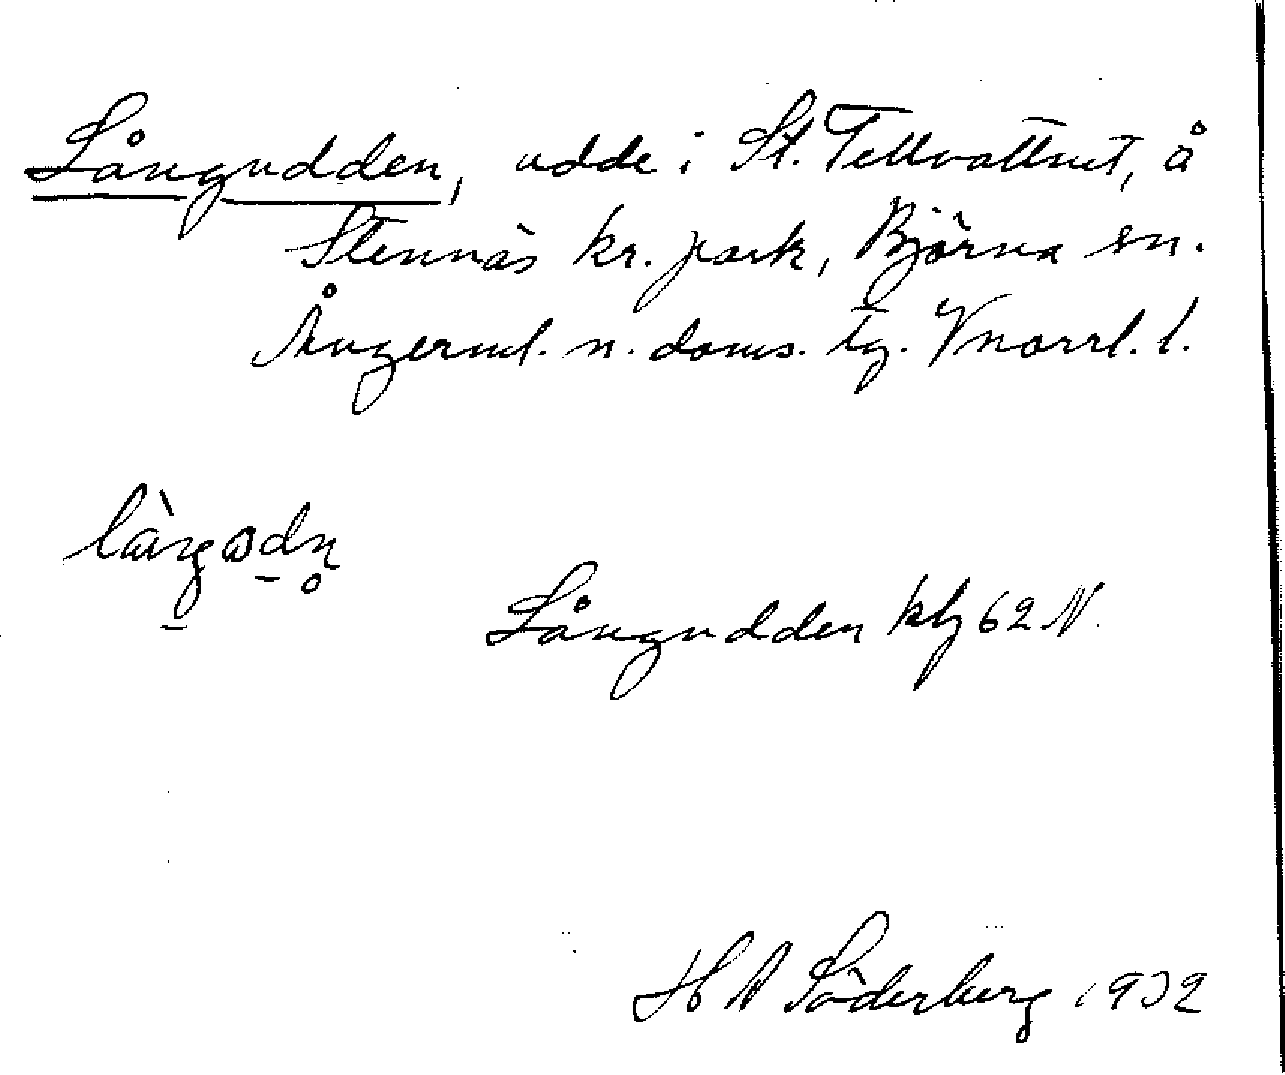 Långudden, udde i St. Tellvattnet, å
Stennäs kr. park, Björna sn.
Ångerml. n. doms. tg. Vnorrl. l.
Långudden kbl 62 N.
H A Söderberg 1932